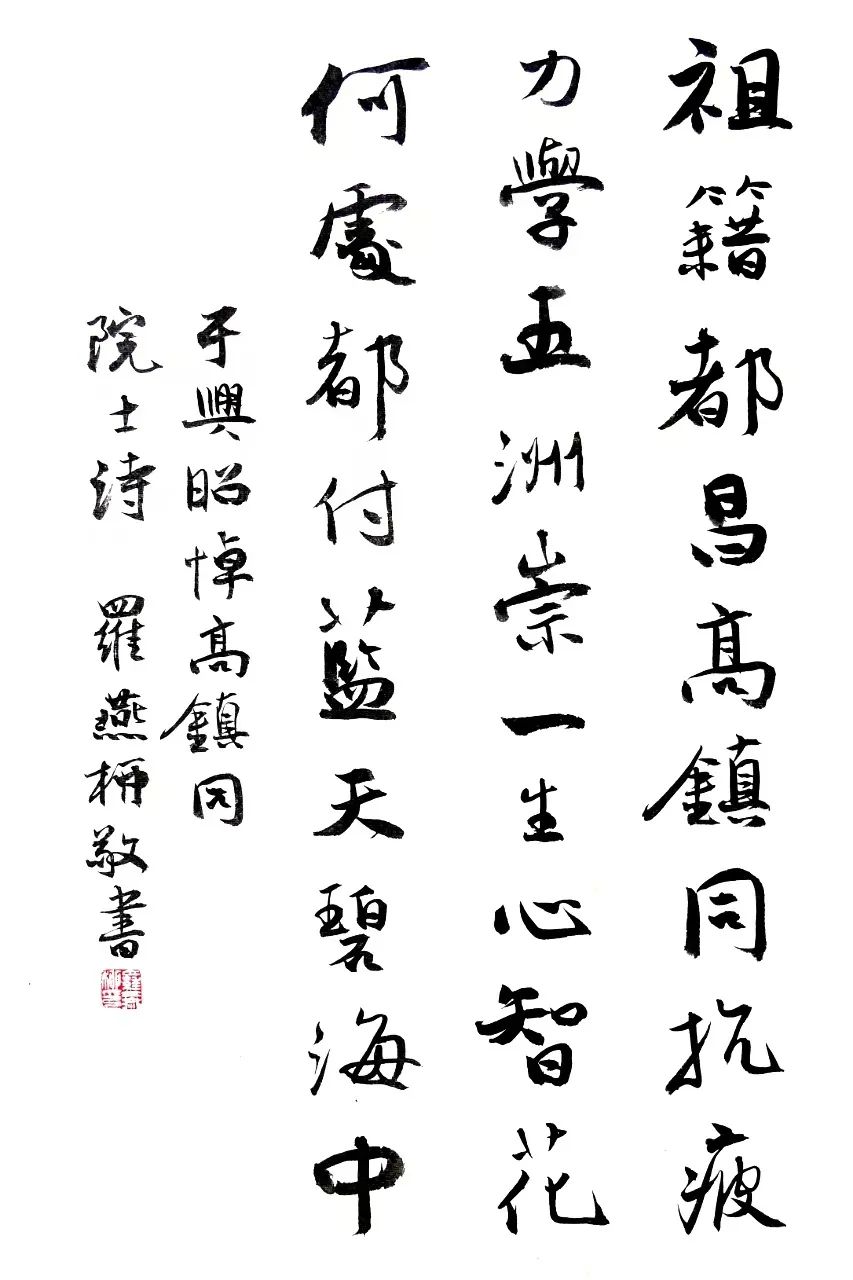 祖籍都昌高鎮同抗疲
力學五洲崇一生心智花
何處都付藍天碧海中
于興昭悼高鎮同
院士诗 羅燕敬書